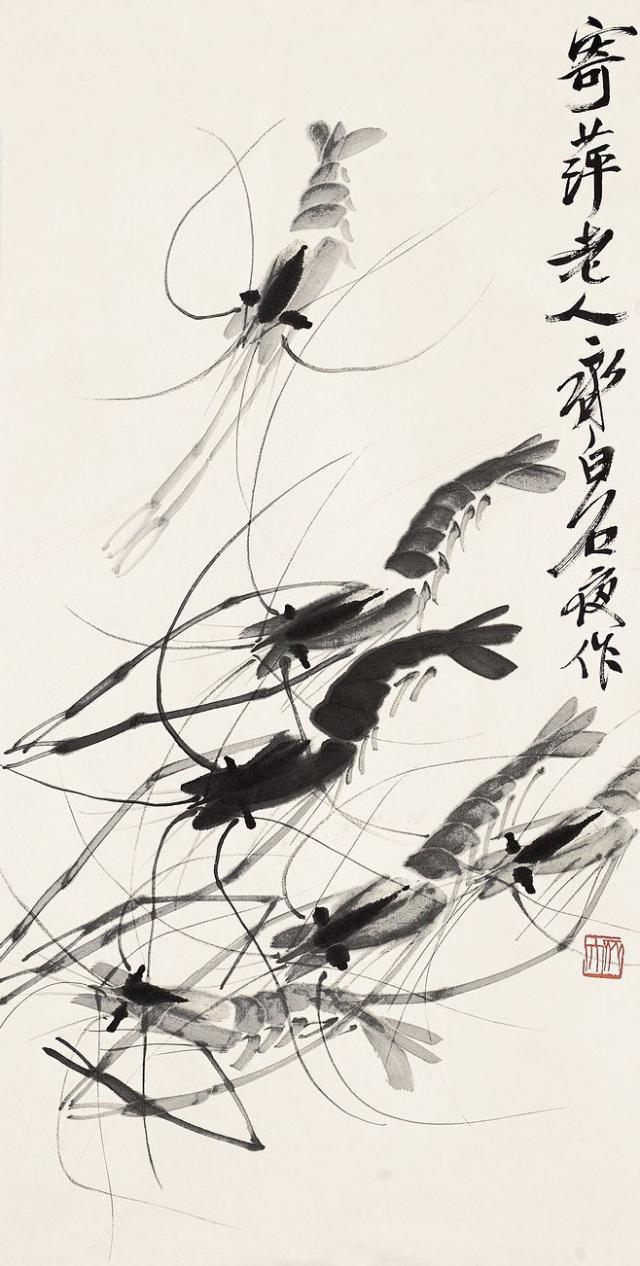 寄萍老人齊白石夜作
木人